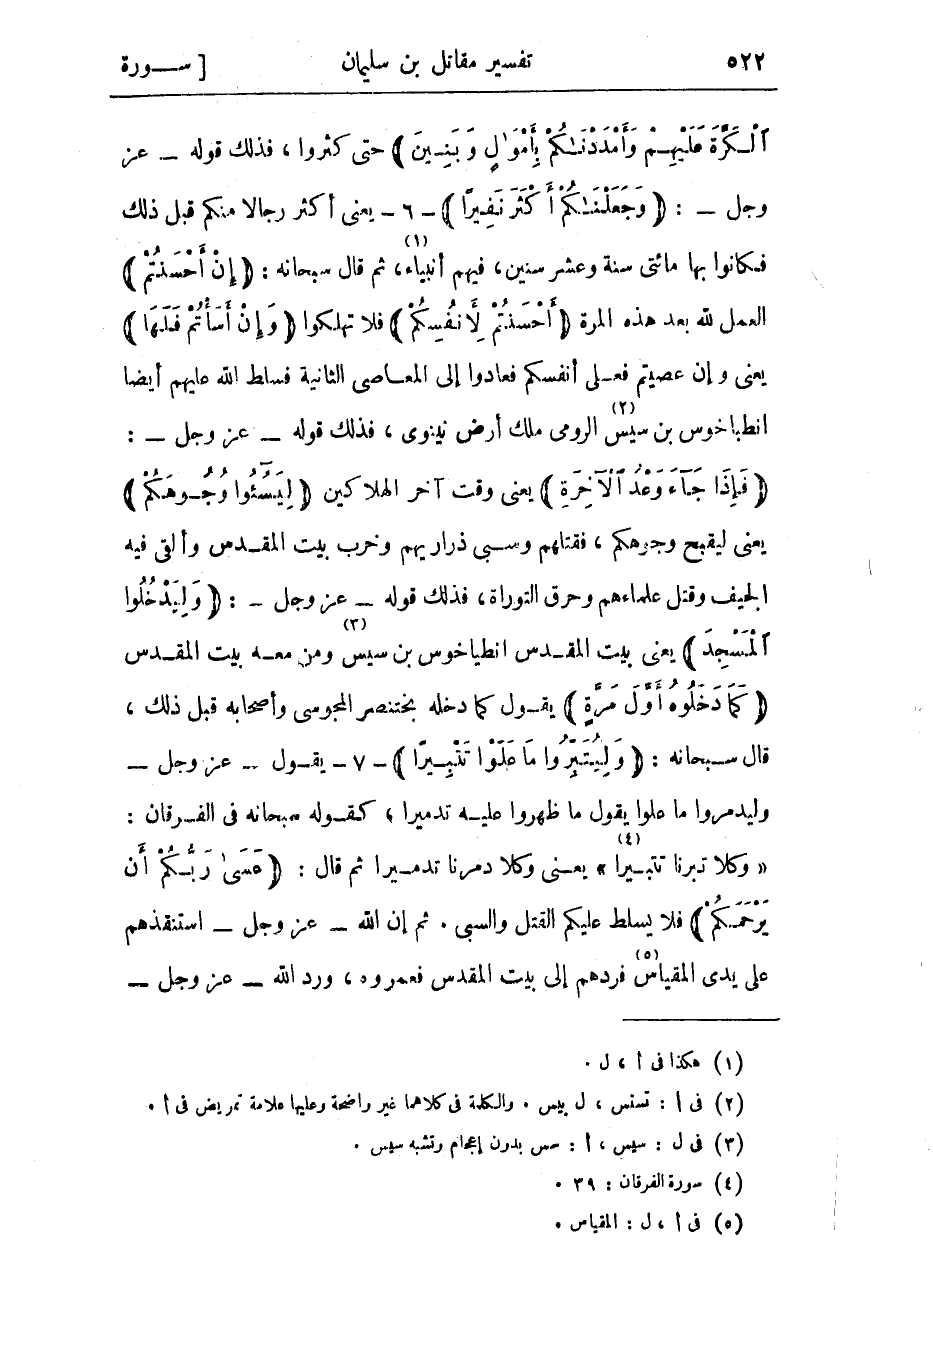 ٥٢٢ تفسير مقاتل بن سليمان [ ســـورة
ٱلْكَرَّةَ عَلَيْهِمْ وَأَمْدَدْنَـٰكُمْ بِأَمْوَٰلٍ وَبَنِينَ ﴾ حتى كثروا ، فذلك قوله ــ عز
وجل ــ : ﴿ وَجَعَلْنَـٰكُمْ أَكْثَرَ نَفِيرًا ﴾ ــ ٦ ــ يعنى أكثر رجالا منكم قبل ذلك
فكانوا بها مائتى سنة وعشر سنين(١)، فيهم أنبياء، ثم قال سبحانه : ﴿ إِنْ أَحْسَنتُمْ ﴾
العمل لله بعد هذه المرة ﴿ أَحْسَنتُمْ لِأَنفُسِكُمْ ﴾ فلا تهلكوا ﴿ وَإِنْ أَسَأْتُمْ فَلَهَا ﴾
يعنى و إن عصيتم فعــلى أنفسكم فعادوا إلى المعــاصى الثانية فسلط الله عليهم أيضا
انطياخوس بن سيس(٢) الرومى ملك أرض نينوى ، فذلك قوله ــ عز وجل ــ :
﴿ فَإِذَا جَآءَ وَعْدُ ٱلْأَخِرَةِ ﴾ يعنى وقت آخر الهلاكين ﴿ لِيَسُـۤـُٔوا وُجُوهَكُمْ ﴾
يعنى ليقبح وجوهكم ، فقتلهم وســبى ذراريهم وخرب بيت المقــدس وألقى فيه
الجيف وقتل علماءهم وحرق التوراة، فذلك قوله ــ عز وجل ــ : ﴿ وَلِيَدْخُلُوا
ٱلْمَسْجِدَ ﴾ يعنى بيت المقــدس انطياخوس بن سيس(٣) ومن معــه بيت المقــدس
﴿ كَمَا دَخَلُوهُ أَوَّلَ مَرَّةٍ ﴾ يقــول كما دخله بختنصر المجوسى وأصحابه قبل ذلك ،
قال ســبحانه : ﴿ وَلِيُتَبِّرُوا مَا عَلَوْا تَتْبِيرًا ﴾ ــ ٧ ــ يقــول ــ عز وجل ــ
وليدمروا ما علوا يقول ما ظهروا عليــه تدميرا ، كقــوله سبحانه فى الفــرقان :
« وكلا تبرنا تتبــيرا(٤) » يعــنى وكلا دمرنا تدمــيرا ثم قال : ﴿ عَسَىٰ رَبُّكُمْ أَن
يَرْحَمَكُمْ ﴾ فلا يسلط عليكم القتل والسبى . ثم إن الله ــ عز وجل ــ استنقذهم
على يدى المقياس(٥) فردهم إلى بيت المقدس فعمروه ، ورد الله ــ عز وجل ــ
(١) هكذا فى أ ، ل .
(٢) فى أ : تسنس ، ل بيس . والكلمة فى كلاهما غير راضحة وعليها علامة تمريض فى أ .
(٣) فى ل : سيس ، أ : سس بدون إعجام وتشبه سيس .
(٤) سورة الفرقان : ٣٩ .
(٥) فى أ ، ل : المقياس .